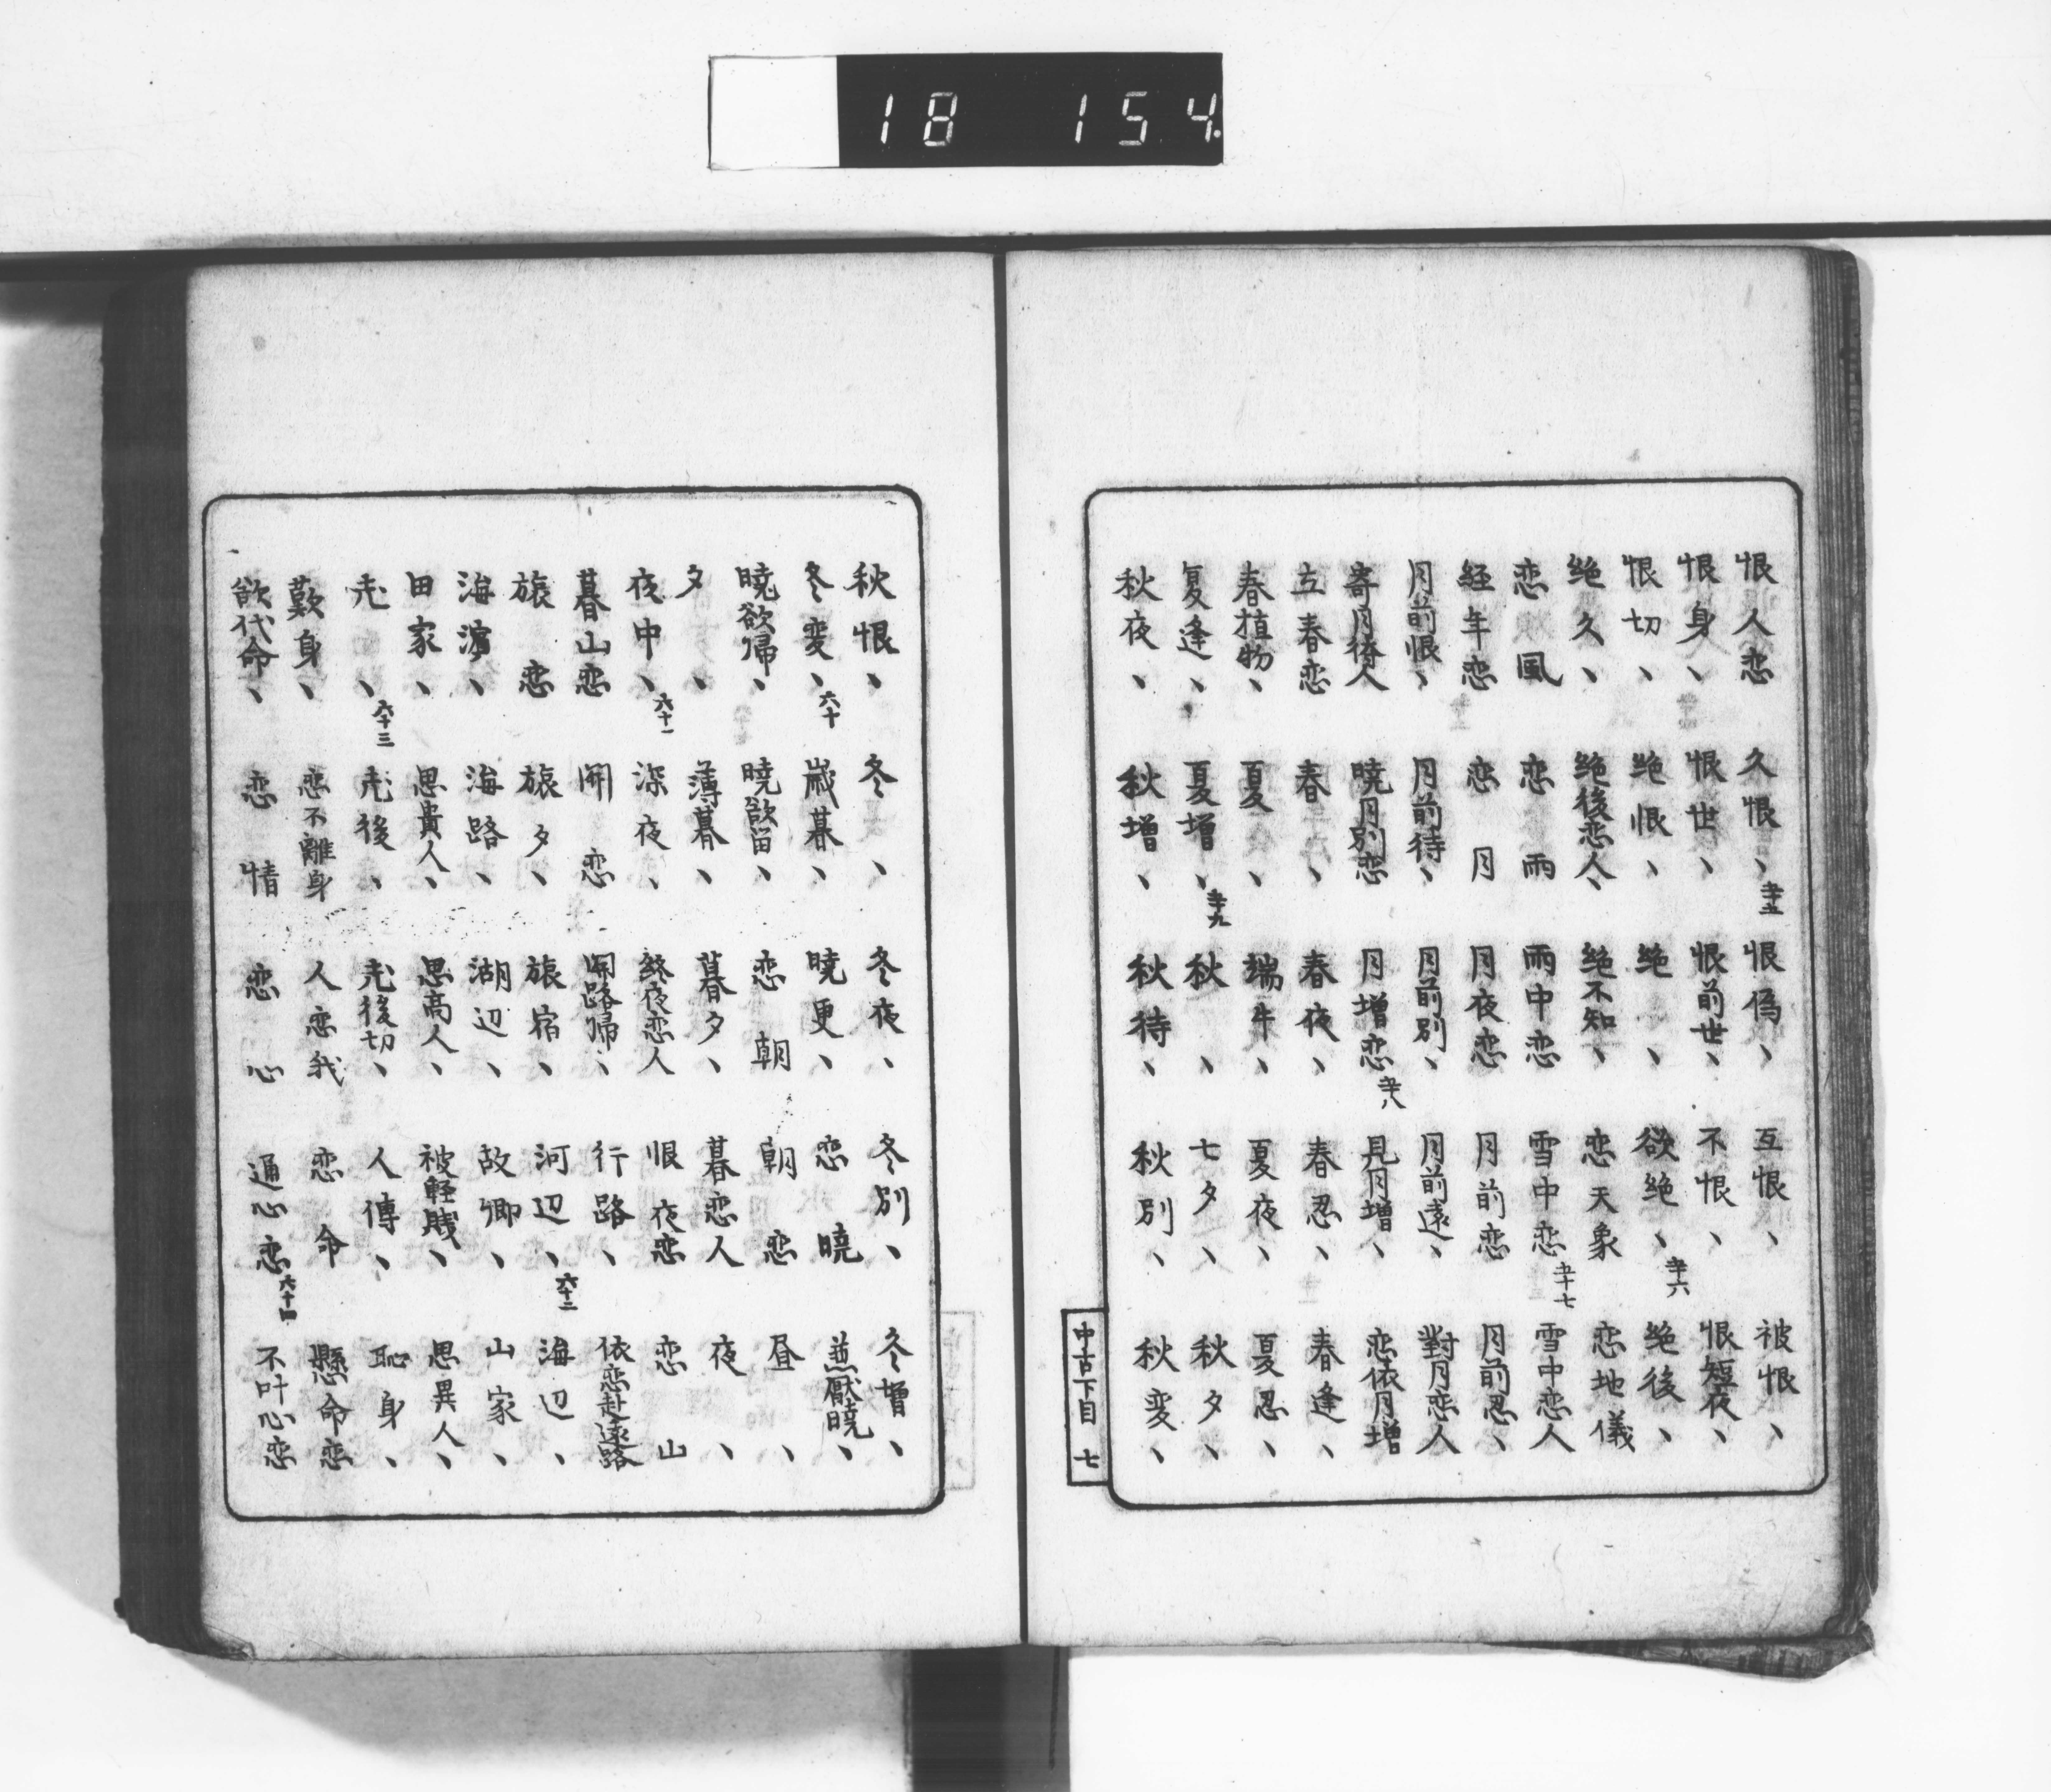 18 154
恨人恋 久恨、 五十五 恨偽、 互恨、 被恨、
恨身、 恨世、 恨前世、 不恨、 恨短夜、
恨切、 絶恨、 絶、 欲絶、 五十六 絶後、
絶久、 絶後恋人、 絶不知、 恋天象 恋地儀
恋風 恋雨 雨中恋 雪中恋 五十七 雪中恋人
経年恋 恋月 月夜恋 月前恋 月前忍、
月前恨、 月前待、 月前別、 月前遠、 對月恋人
寄月待人 暁月別恋 月増恋 五十八 見月増、 恋依月増
立春恋 春、 春夜、 春忍、 春逢、
春植物、 夏、 端午、 夏夜、 夏忍、
夏逢、 夏増、 五十九 秋、 七夕、 秋夕、
秋夜、 秋増、 秋待、 秋別、 秋変、
中古下目 七
秋恨、 冬、 冬夜、 冬別、 冬増、
冬変、 六十 歳暮、 暁更、 恋暁 並厭暁、
暁欲帰、 暁欲留、 恋朝 朝恋 昼、
夕、 薄暮、 暮夕、 暮恋人 夜、
夜中、 六十一 深夜、 終夜恋人 恨夜恋 恋山
暮山恋 関恋 関路帰、 行路、 依恋赴遠路
旅恋 旅夕、 旅宿、 河辺、 六十二 海辺、
海濱、 海路、 湖辺、 故郷、 山家、
田家、 思貴人、 思高人、 被軽賎、 思異人、
老、 六十三 老後、 老後切、 人傳、 恥身、
歎身、 恋不離身 人恋我 恋命 懸命恋
欲代命、 恋情 恋心 通心恋 六十四 不叶心恋